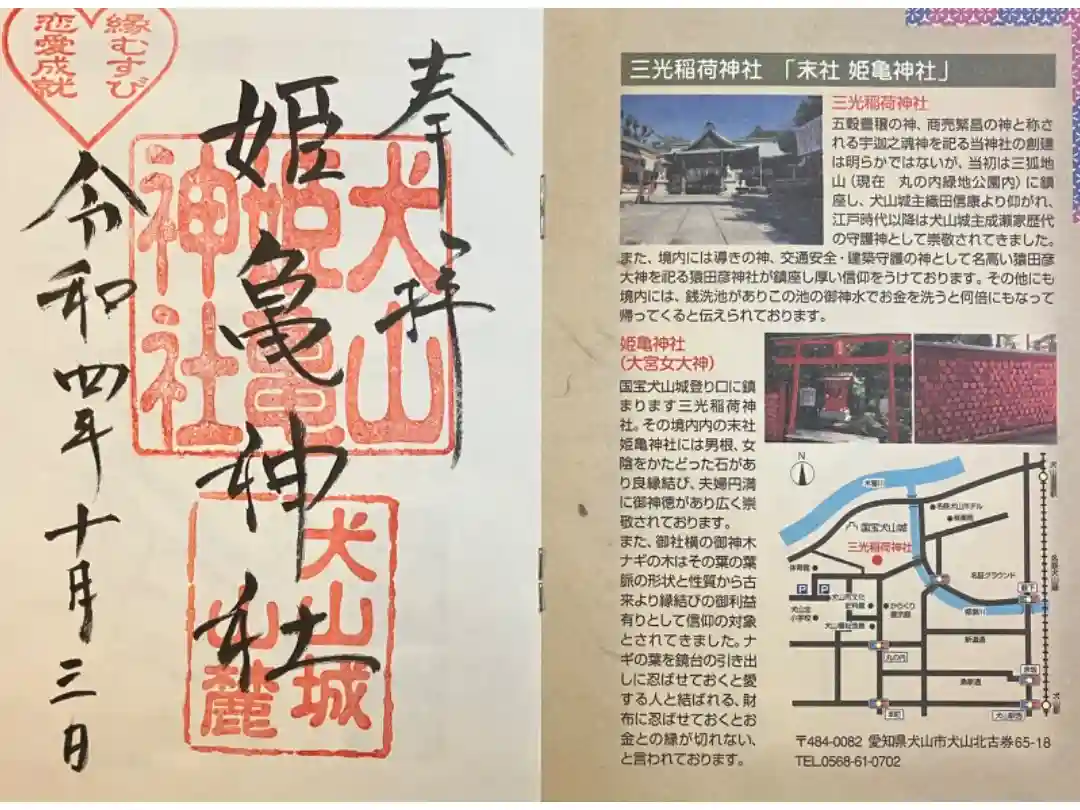 縁むすび
恋愛成就
奉拝
犬山
姫亀
神社
姫亀神社
犬山城
山麓
令和四年十月三日
三光稲荷神社 「末社 姫亀神社」
三光稲荷神社
五穀豊穣の神、商売繁昌の神と称さ
れる宇迦之魂神を祀る当神社の創建
は明らかではないが、当初は三狐地
山(現在 丸の内緑地公園内)に鎮
座し、犬山城主織田信康より仰がれ、
江戸時代以降は犬山城主成瀬家歴代
の守護神として崇敬されてきました。
また、境内には導きの神、交通安全・建築守護の神として名高い猿田彦
大神を祀る猿田彦神社が鎮座し厚い信仰をうけております。その他にも
境内には、銭洗池がありこの池の御神水でお金を洗うと何倍にもなって
帰ってくると伝えられております。
姫亀神社
(大宮女大神)
国宝犬山城登り口に鎮
まります三光稲荷神
社。その境内内の末社
姫亀神社には男根、女
陰をかたどった石があ
り良縁結び、夫婦円満
に御神徳があり広く崇
敬されております。
また、御社横の御神木
ナギの木はその葉の葉
脈の形状と性質から古
来より縁結びの御利益
有りとして信仰の対象
とされてきました。ナ
ギの葉を鏡台の引き出
しに忍ばせておくと愛
する人と結ばれる、財
布に忍ばせておくとお
金との縁が切れない、
と言われております。
N
木曽川
名鉄犬山ホテル
国宝犬山城
三光稲荷神社
体育館
名証グラウンド
P
P
犬山市文化
史料館
からくり
展示館
犬山北
小学校
郷瀬川
新道通
丸の内
本町
犬山駅西
犬山駅
〒484-0082 愛知県犬山市犬山北古券65-18
TEL.0568-61-0702